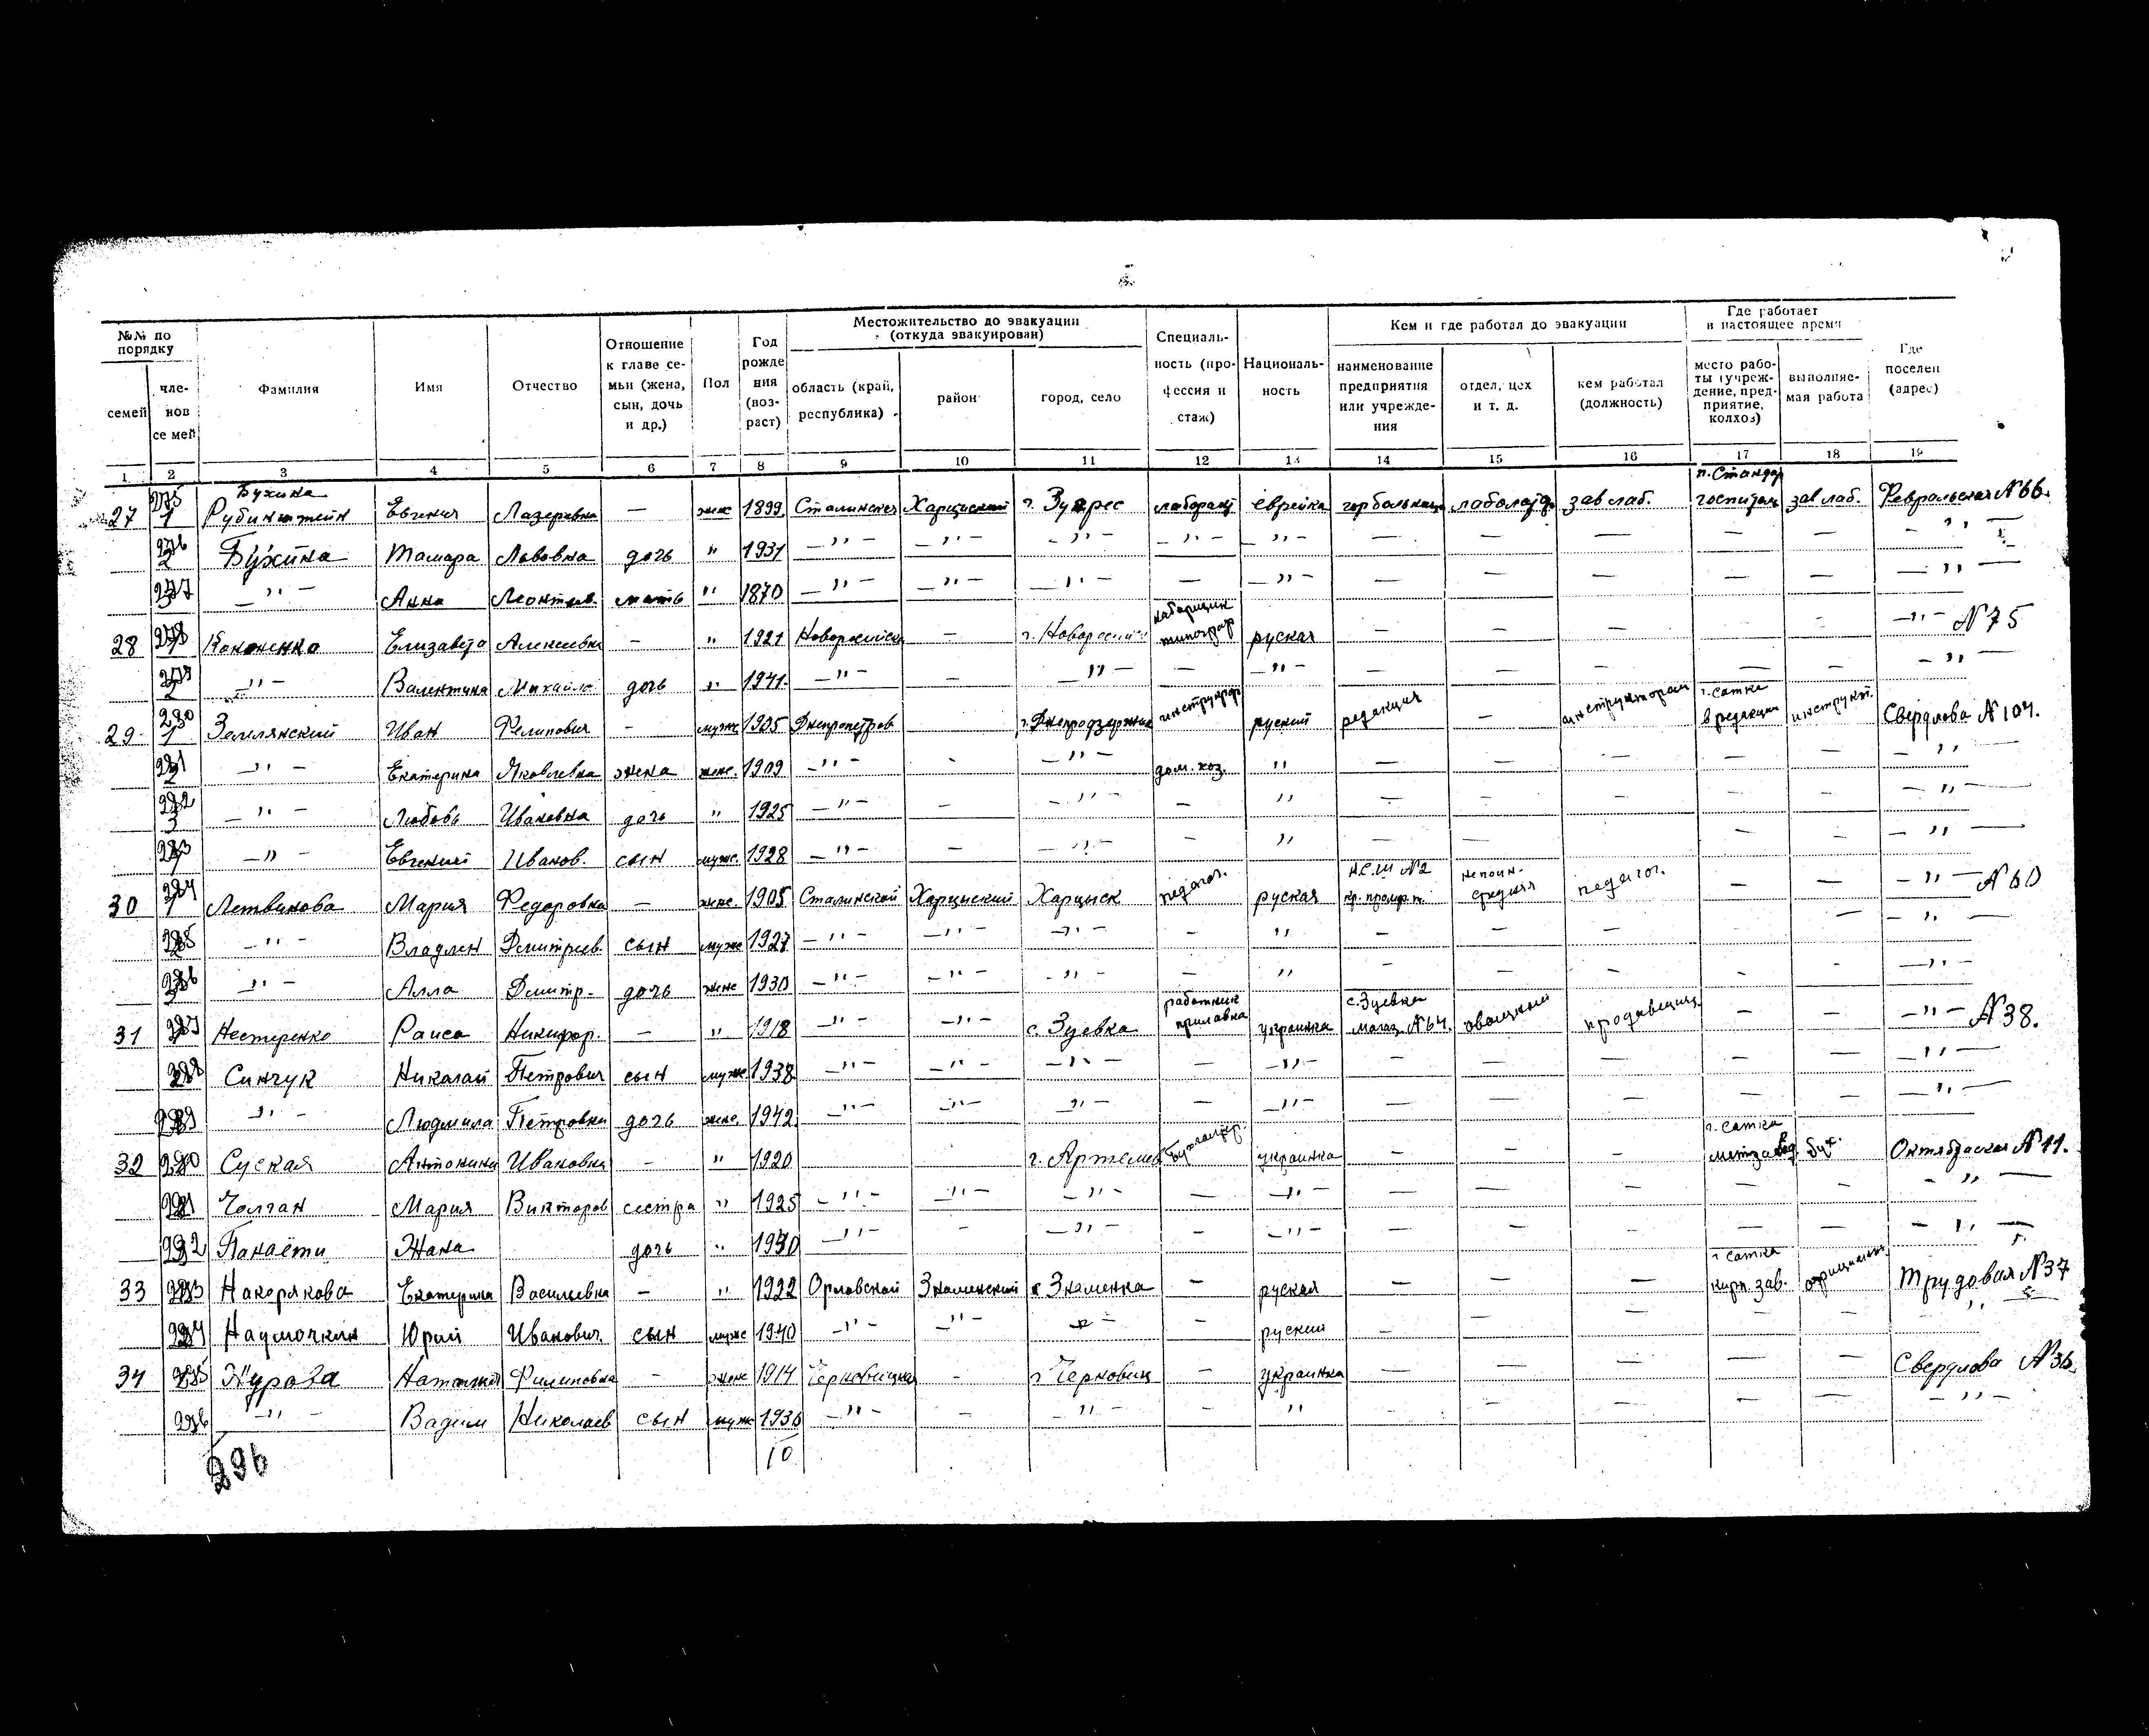 №№ по порядку
Фамилия
Имя
Отчество
Отношение к главе семьи (жена, сын, дочь и др.)
Пол
Год рождения (возраст)
Местожительство до эвакуации (откуда эвакуирован)
Специальность (профессия и стаж)
Национальность
Кем и где работал до эвакуации
Где работает в настоящее время
Где поселен (адрес)
семей
членов семей
область (край, республика)
район
город, село
наименование предприятия или учреждения
отдел, цех и т. д.
кем работал (должность)
место работы (учреждение, предприятие, колхоз)
выполняемая работа
1 2 3 4 5 6 7 8 9 10 11 12 13 14 15 16 17 18 19
27 275 1 Бухина Рубинштейн Евгения Лазаревна — жен 1899 Сталинская Харцисский г. Зуgрес лаборант еврейка горбольница зав лаб. госпиталь зав лаб. Февральская №66.
276 2 Бухина Тамара Львовна дочь " 1931 —"— —"— —"— —"— —"— — — — — — —"—
277 3 —"— Анна Леонтьев. мать " 1870 —"— —"— —"— — —"— — — — — — —"—
28 278 1 Кононенко Елизавета Алексеевна — " 1921 Новоросийска — г. Новоросийск наборщик типограф руская — — — — — —"— №75
279 2 —"— Валентина Михайло дочь " 1941. —"— — —"— — —"— — — — — — —"—
29 280 1 Землянский Иван Филипович — муж 1905 Днепропетров г. Днепродзержин инструктор руский редакция — инструктором г. Сатка в редакции инструкт. Свердлова №104.
281 2 —"— Екатерина Яковлевна жена жен. 1909 —"— —"— дом. хоз. " — — — — — —"—
282 3 —"— Любовь Ивановна дочь " 1925 —"— — —"— — " — — — — — —"—
283 4 —"— Евгений Иванов. сын муж. 1928 —"— — —"— — " — — — — —"—
30 284 1 Летвинова Мария Федоровна — жен. 1905 Сталинской Харцыский Харцыск педагог. руская Н.С.Ш №2 средняя педагог. — — —"— №60
285 2 —"— Владлен Дмитриев. сын муж 1927 —"— —"— —"— — " — — — — —"—
286 3 —"— Алла Дмитр. дочь жен 1930 —"— —"— —"— — " — — — — — —"—
31 287 Нестеренко Раиса Никифор. — " 1918 —"— —"— с. Зуевка работник прилавка украинка с. Зуевка магаз. №64. овощной продавщица — — —"— №38.
288 Синчук Николай Петрович сын муж 1938 —"— —"— —"— — —"— — — — — — —"—
289 —"— Людмила Петровна дочь жен. 1942. —"— —"— —"— — —"— — — — — — —"—
32 290 Суская Антонина Ивановна — " 1920 г. Артемов Бухгалтер. украинка — — — г. Сатка бух. Октябрская №11.
291 Чолган Мария Викторов сестра " 1925 —"— —"— —"— — —"— — — — — — —"—
292 Панаёти Жана дочь " —"— — —"— — —"— — — — — — —"—
33 293 Накорякова Екатерина Васильевна — " 1922 Орловской Знаменский с Знаменка — руская — — — г Сатка кирп. зав. официант. Трудовая №37
294 Наумочкин Юрий Иванович. сын муж 1940 —"— —"— —"— — руский — — — — — "
34 295 Жураза Наталья Филиповна — жен 1914 Черновицкая — г Черновиц — украинка — — — — — Свердлова №36.
296 —"— Вадим Николаев сын муж 1936 —"— — —"— — " — — — — — —"—
296
10